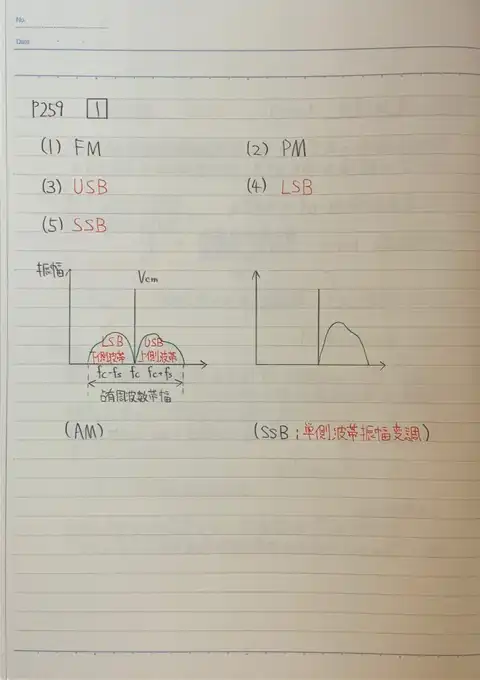 No.
Date
P259 1
(1) FM (2) PM
(3) USB (4) LSB
(5) SSB
振幅 Vcm
LSB USB
下側波帯 上側波帯
fc-fs fc fc+fs
占有周波数帯幅
(AM) (SSB;単側波帯振幅変調)